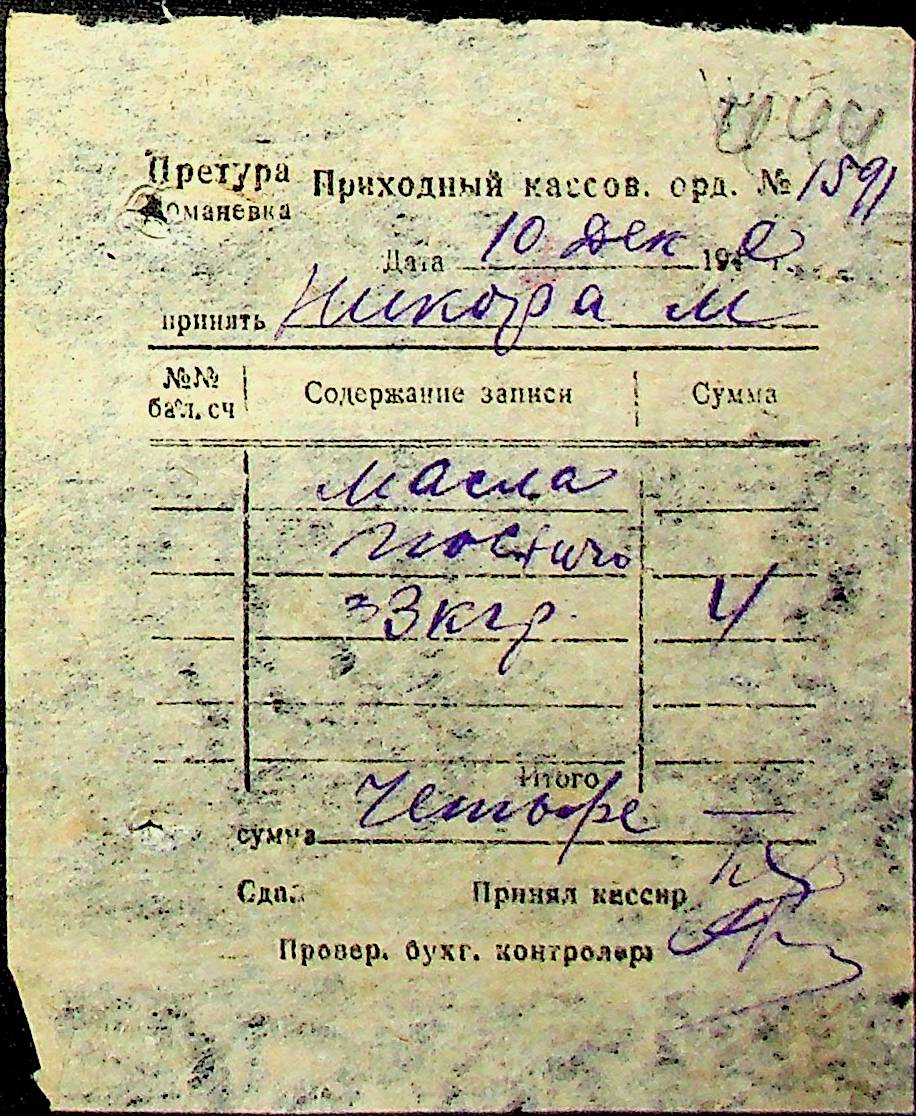 Претура Приходный кассов. орд. № 1591
Доманевка
Дата 10 дек 194 г.
принять М
№№ бал. сч Содержание записи Сумма
масла
постного
33 кгр. 4
Итого
сумма Четыре —
Сдал Принял кассир
Провер. бухг. контролер